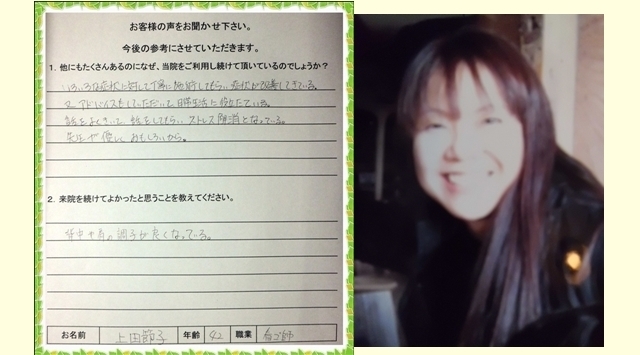 お客様の声をお聞かせ下さい。
今後の参考にさせていただきます。
1．他にもたくさんあるのになぜ、当院をご利用し続けて頂いているのでしょうか？
いろいろな症状に対して丁寧に施術してもらい症状が改善してきている。
又、アドバイスをしていただいて日常生活に役立たている。
話をよくきいて、話をしてもらい、ストレス解消となっている。
先生が優しく、おもしろいから。
2．来院を続けてよかったと思うことを教えてください。
背中や肩の調子が良くなっている。
お名前 上田節子 年齢 42 職業 看ご師